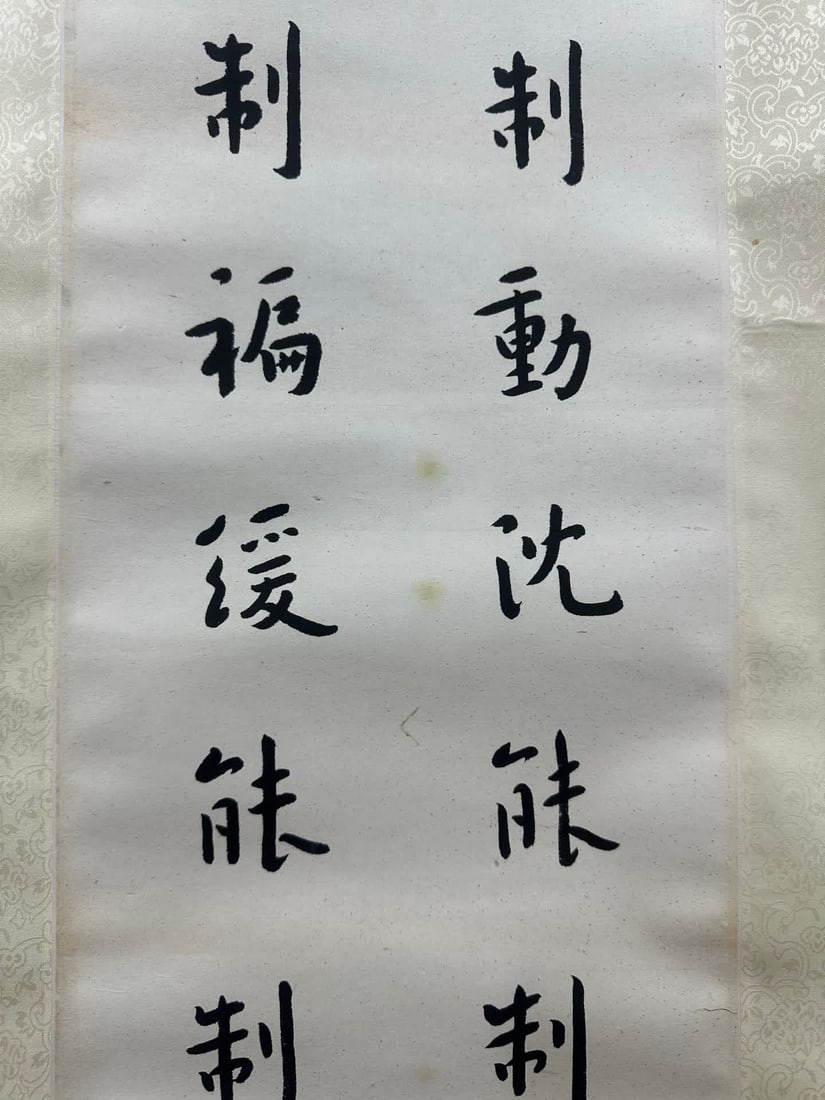 制動沈能制
制褊緩能制